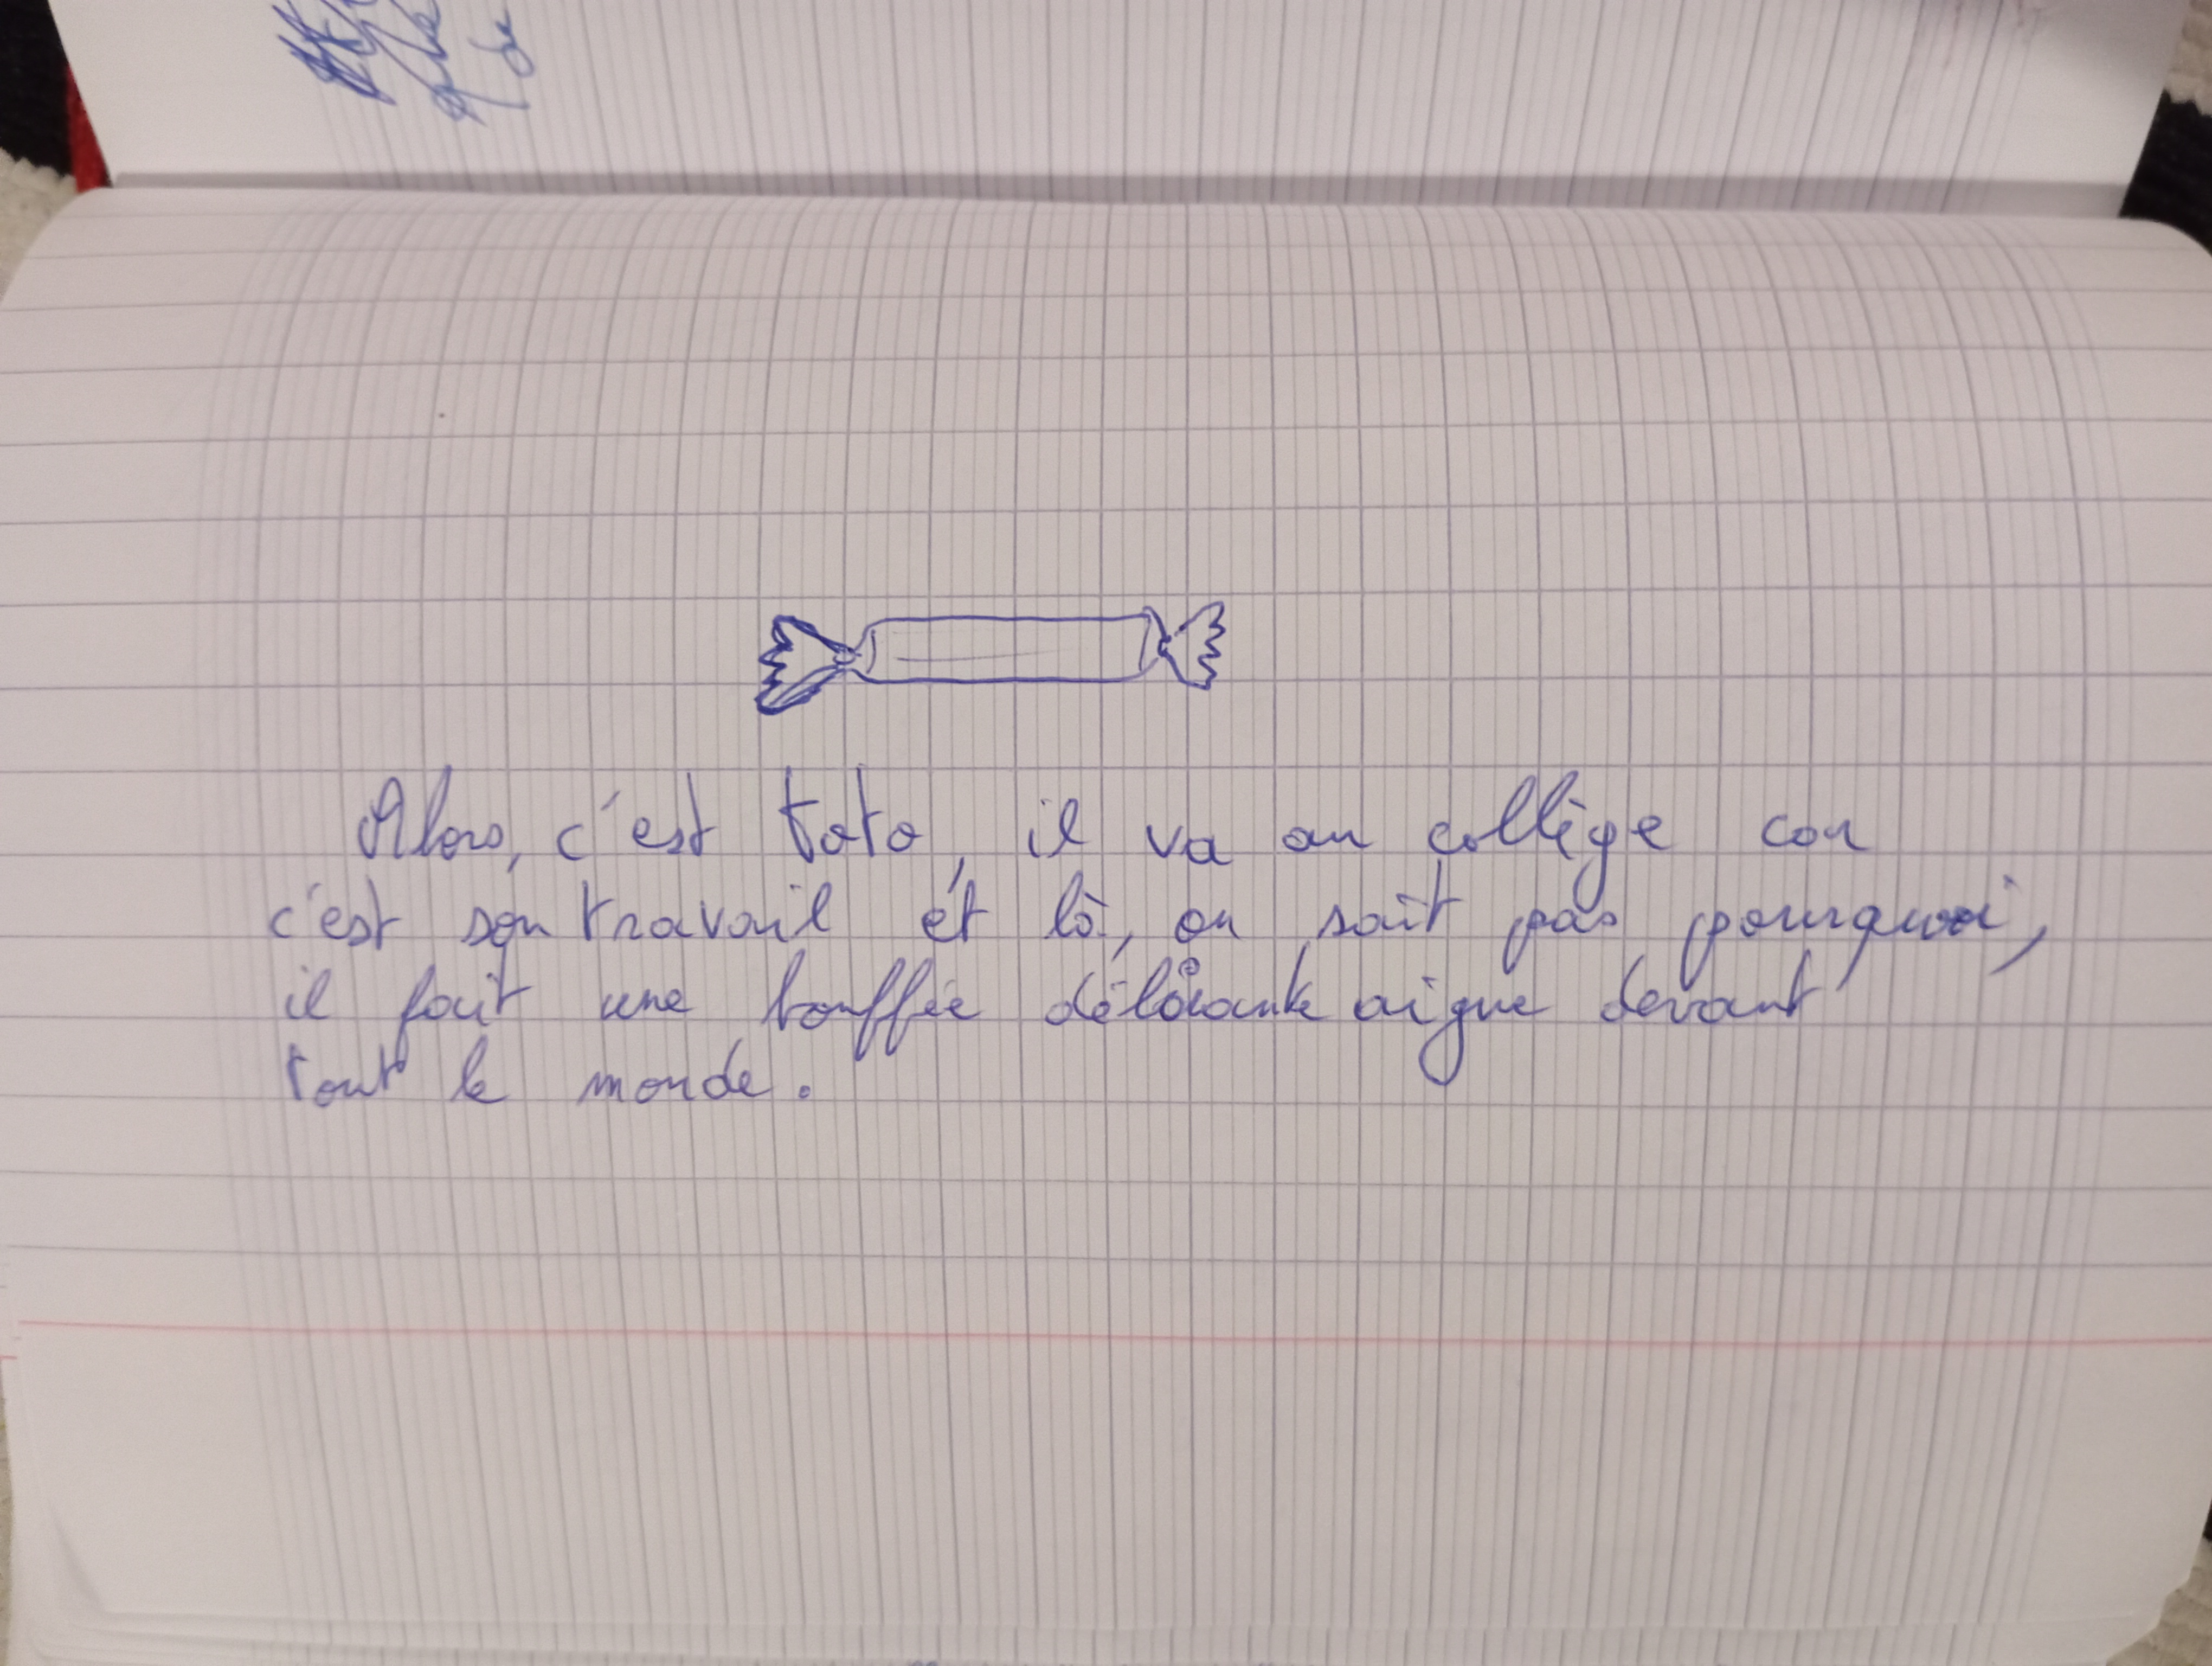 Alors, c'est toto, il va au collège car
c'est son travail et là, on sait pas pourquoi,
il fait une bouffée délirante aigue devant
tout le monde.